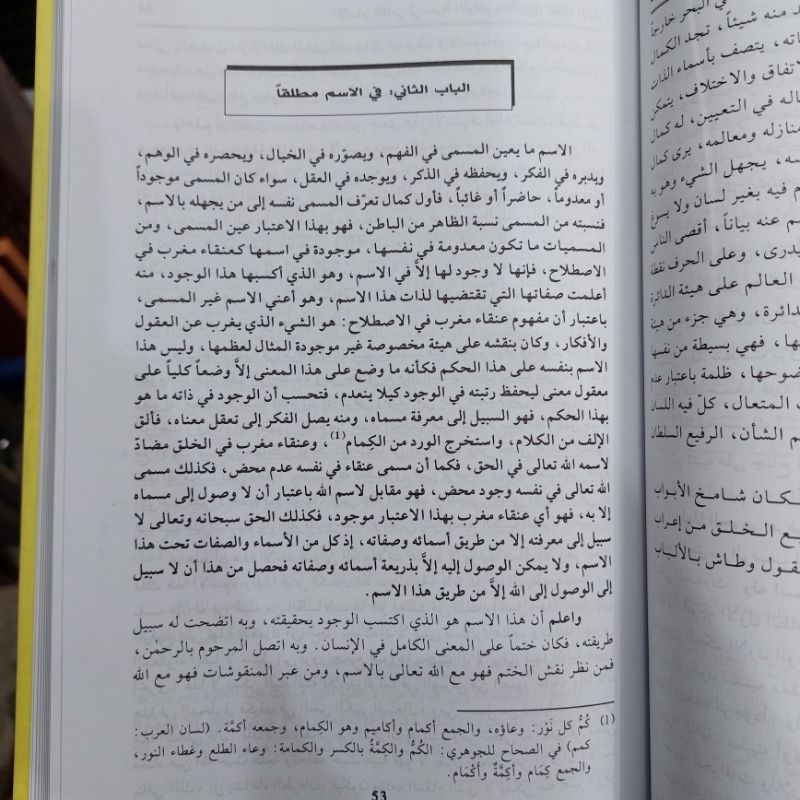 الباب الثاني: في الاسم مطلقاً
الاسم ما يعين المسمى في الفهم، ويصوّره في الخيال، ويحصره في الوهم،
ويدبره في الفكر، ويحفظه في الذكر، ويوجده في العقل، سواء كان المسمى موجوداً
أو معدوماً، حاضراً أو غائباً، فأول كمال تعرّف المسمى نفسه إلى من يجهله بالاسم،
فنسبته من المسمى نسبة الظاهر من الباطن، فهو بهذا الاعتبار عين المسمى، ومن
المسميات ما تكون معدومة في نفسها، موجودة في اسمها كعنقاء مغرب في
الاصطلاح، فإنها لا وجود لها إلاَّ في الاسم، وهو الذي أكسبها هذا الوجود، منه
أعلمت صفاتها التي تقتضيها لذات هذا الاسم، وهو أعني الاسم غير المسمى،
باعتبار أن مفهوم عنقاء مغرب في الاصطلاح: هو الشيء الذي يغرب عن العقول
والأفكار، وكان بنقشه على هيئة مخصوصة غير موجودة المثال لعظمها، وليس هذا
الاسم بنفسه على هذا الحكم فكأنه ما وضع على هذا المعنى إلاَّ وضعاً كلياً على
معقول معنى ليحفظ رتبته في الوجود كيلا ينعدم، فتحسب أن الوجود في ذاته ما هو
بهذا الحكم، فهو السبيل إلى معرفة مسماه، ومنه يصل الفكر إلى تعقل معناه، فألق
الإلف من الكلام، واستخرج الورد من الكِمام(1)، وعنقاء مغرب في الخلق مضادّ
لاسمه الله تعالى في الحق، فكما أن مسمى عنقاء في نفسه عدم محض، فكذلك مسمى
الله تعالى في نفسه وجود محض، فهو مقابل لاسم الله باعتبار أن لا وصول إلى مسماه
إلا به، فهو أي عنقاء مغرب بهذا الاعتبار موجود، فكذلك الحق سبحانه وتعالى لا
سبيل إلى معرفته إلا من طريق أسمائه وصفاته، إذ كل من الأسماء والصفات تحت هذا
الاسم، ولا يمكن الوصول إليه إلاَّ بذريعة أسمائه وصفاته فحصل من هذا أن لا سبيل
إلى الوصول إلى الله إلاَّ من طريق هذا الاسم.
واعلم أن هذا الاسم هو الذي اكتسب الوجود بحقيقته، وبه اتضحت له سبيل
طريقته، فكان ختماً على المعنى الكامل في الإنسان. وبه اتصل المرحوم بالرحمٰن،
فمن نظر نقش الختم فهو مع الله تعالى بالاسم، ومن عبر المنقوشات فهو مع الله
(1) كُمُّ كل نَوْر: وعاؤه، والجمع أكمام وأكاميم وهو الكِمام، وجمعه أكمَّة. (لسان العرب:
كمم) في الصحاح للجوهري: الكُمُّ والكِمَّةُ بالكسر والكمامة: وعاء الطلع وغطاء النور،
والجمع كِمَام وأكِمَّةٌ وأكْمَام.
53
في البحر خارجاً
منه شيئاً، تجد الكمال
يتصف بأسماء الذات
والاختلاف، يتمكن
في التعيين، له كمال
منازله ومعالمه، يرى كمال
يجهل الشيء وهو به
فيه بغير لسان ولا يسوغ
عنه بياناً، أقصى الناس
وعلى الحرف نقطة
العالم على هيئة الدائرة
وهي جزء من هيئة
فهي بسيطة من نفسها
ظلمة باعتبار عدم
المتعال، كلّ فيه اللسان
الشأن، الرفيع السلطان
شامخ الأبواب
الخلق من إعراب
وطاش بالألباب